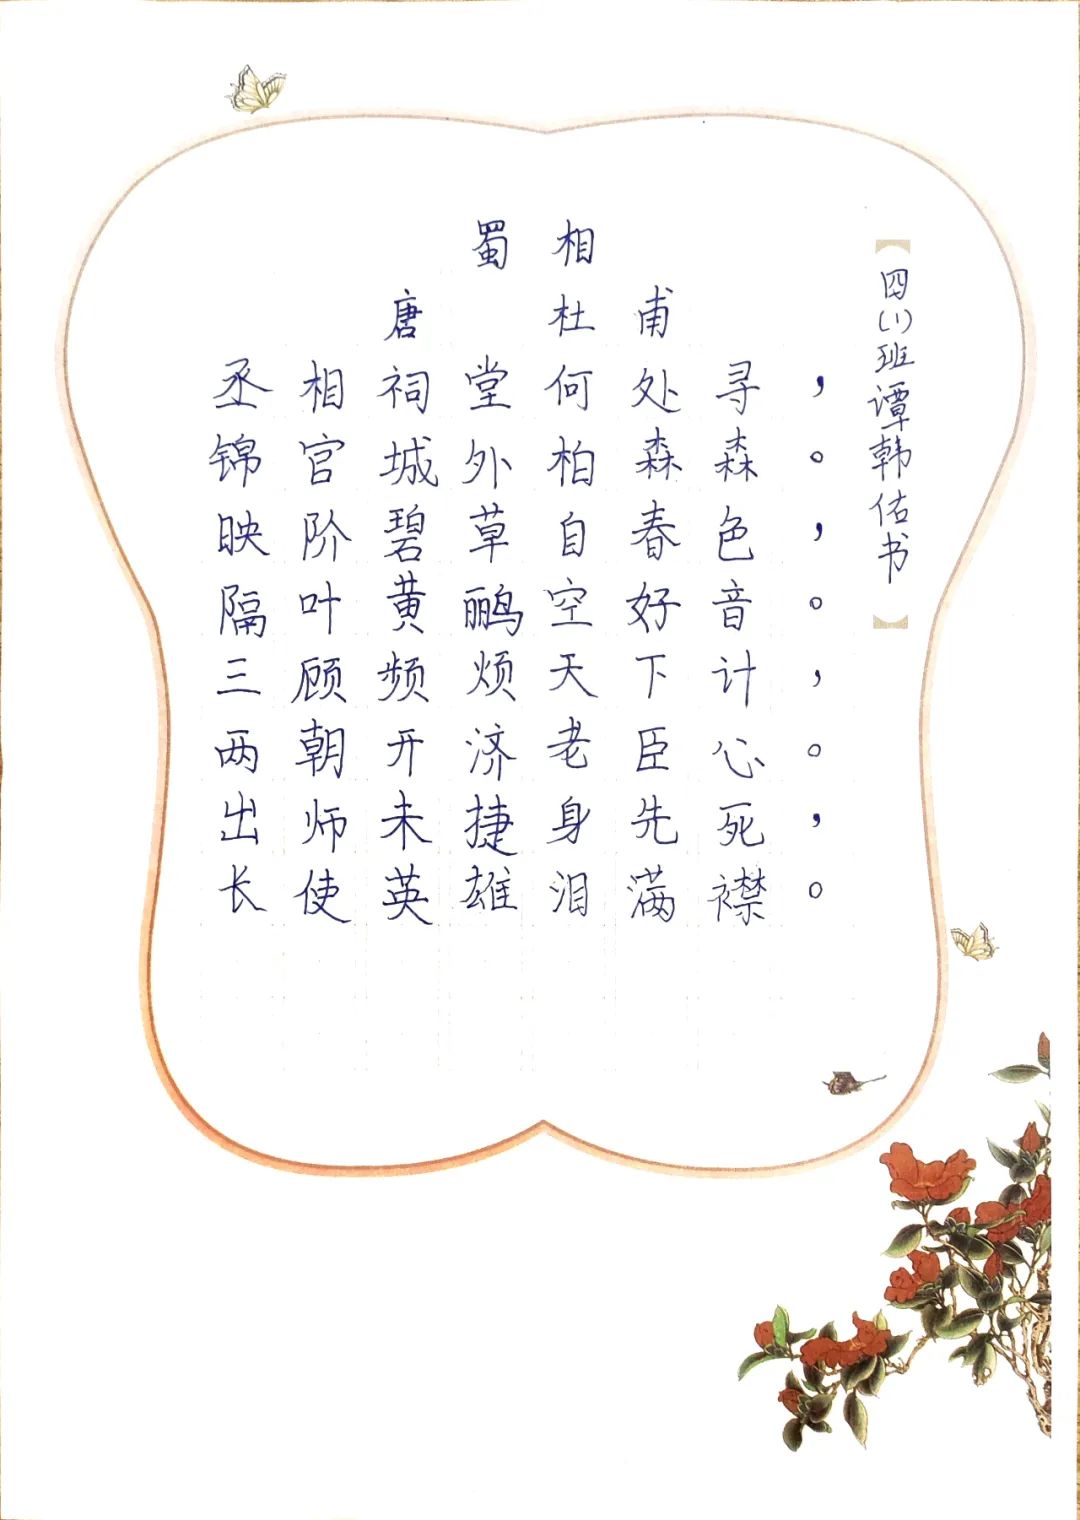 蜀相
唐 杜甫
丞相祠堂何处寻，
锦官城外柏森森。
映阶碧草自春色，
隔叶黄鹂空好音。
三顾频烦天下计，
两朝开济老臣心。
出师未捷身先死，
长使英雄泪满襟。
【四(1)班谭韩佑书】